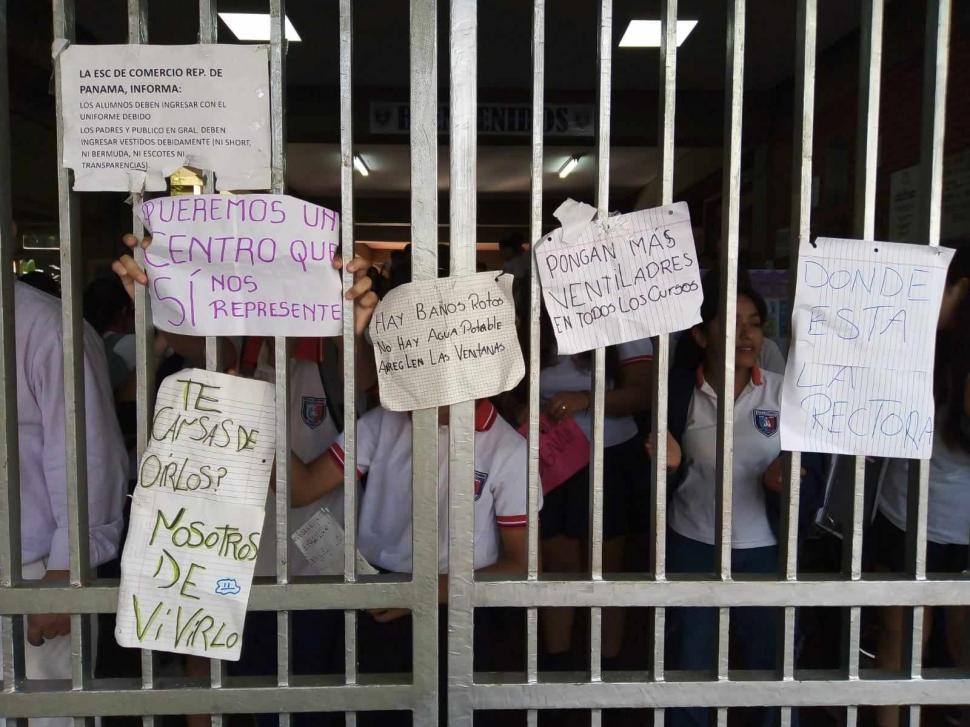 BIENVENIDOS
LA ESC DE COMERCIO REP. DE
PANAMA, INFORMA:
LOS ALUMNOS DEBEN INGRESAR CON EL
UNIFORME DEBIDO
LOS PADRES Y PUBLICO EN GRAL. DEBEN
INGRESAR VESTIDOS DEBIDAMENTE (NI SHORT,
NI BERMUDA, NI ESCOTES NI
TRANSPARENCIAS)
QUEREMOS UN
CENTRO QUE
SÍ NOS
REPRESENTE
TE
CAMSAS DE
OÍRLOS?
NOSOTROS
DE
VIVIRLO
HAY BAÑOS ROTOS
NO HAY AGUA POTABLE
AREGLEN LAS VENTANAS
PONGAN MÁS
VENTILADRES
EN TODOS LOS CURSOS
DONDE
ESTA
LA
RECTORA